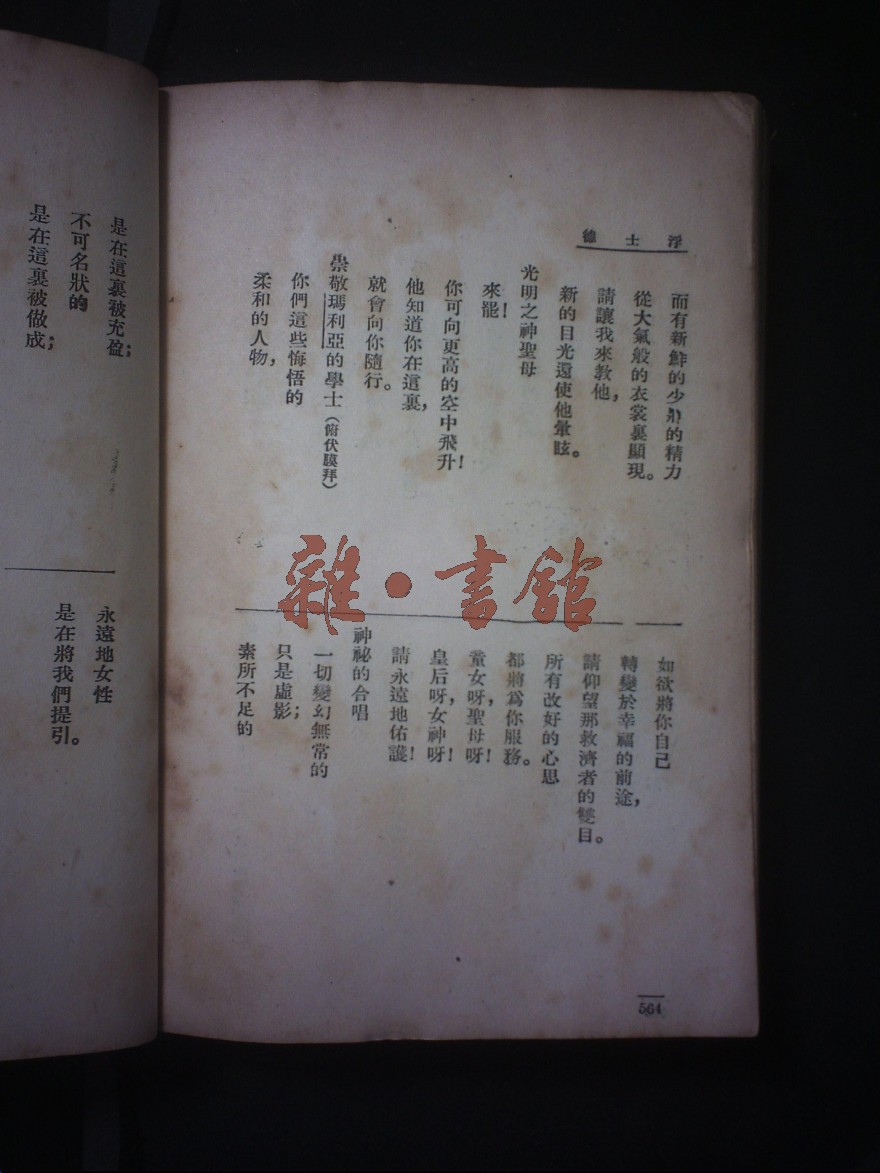 浮士德
而有新鮮的少壯的精力
從大氣般的衣裳裏顯現。
請讓我來教他，
新的目光還使他暈眩。
光明之神聖母
來罷！
你可向更高的空中飛升！
他知道你在這裏，
就會向你隨行。
崇敬瑪利亞的學士（俯伏膜拜）
你們這些悔悟的
柔和的人物，
如欲將你自己
轉變於幸福的前途，
請仰望那救濟者的雙目。
所有改好的心思
都將爲你服務。
童女呀，聖母呀！
皇后呀，女神呀！
請永遠地佑護！
神祕的合唱
一切變幻無常的
只是虛影；
素所不足的
564
是在這裏被充盈；
不可名狀的
是在這裏被做成；
永遠地女性
是在將我們提引。
雜·書館